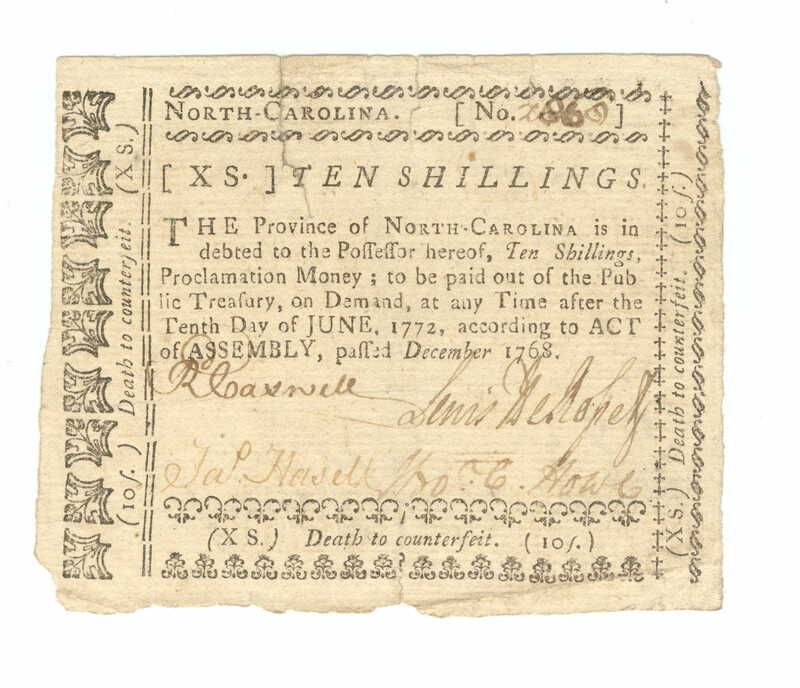 NORTH-CAROLINA. [ No. ]
[ X S. ] TEN SHILLINGS.
THE Province of NORTH-CAROLINA is in
debted to the Poſſeſſor hereof, Ten Shillings,
Proclamation Money ; to be paid out of the Pub
lic Treaſury, on Demand, at any Time after the
Tenth Day of JUNE, 1772, according to ACT
of ASSEMBLY, paſſed December 1768.
R Caswell Lewis DeRoſſett
Jas. Hasell Rot. Howe
(X S.) Death to counterfeit. (10ſ.)
(10ſ.) Death to counterfeit. (X S.)
(X S.) Death to counterfeit. (10ſ.)